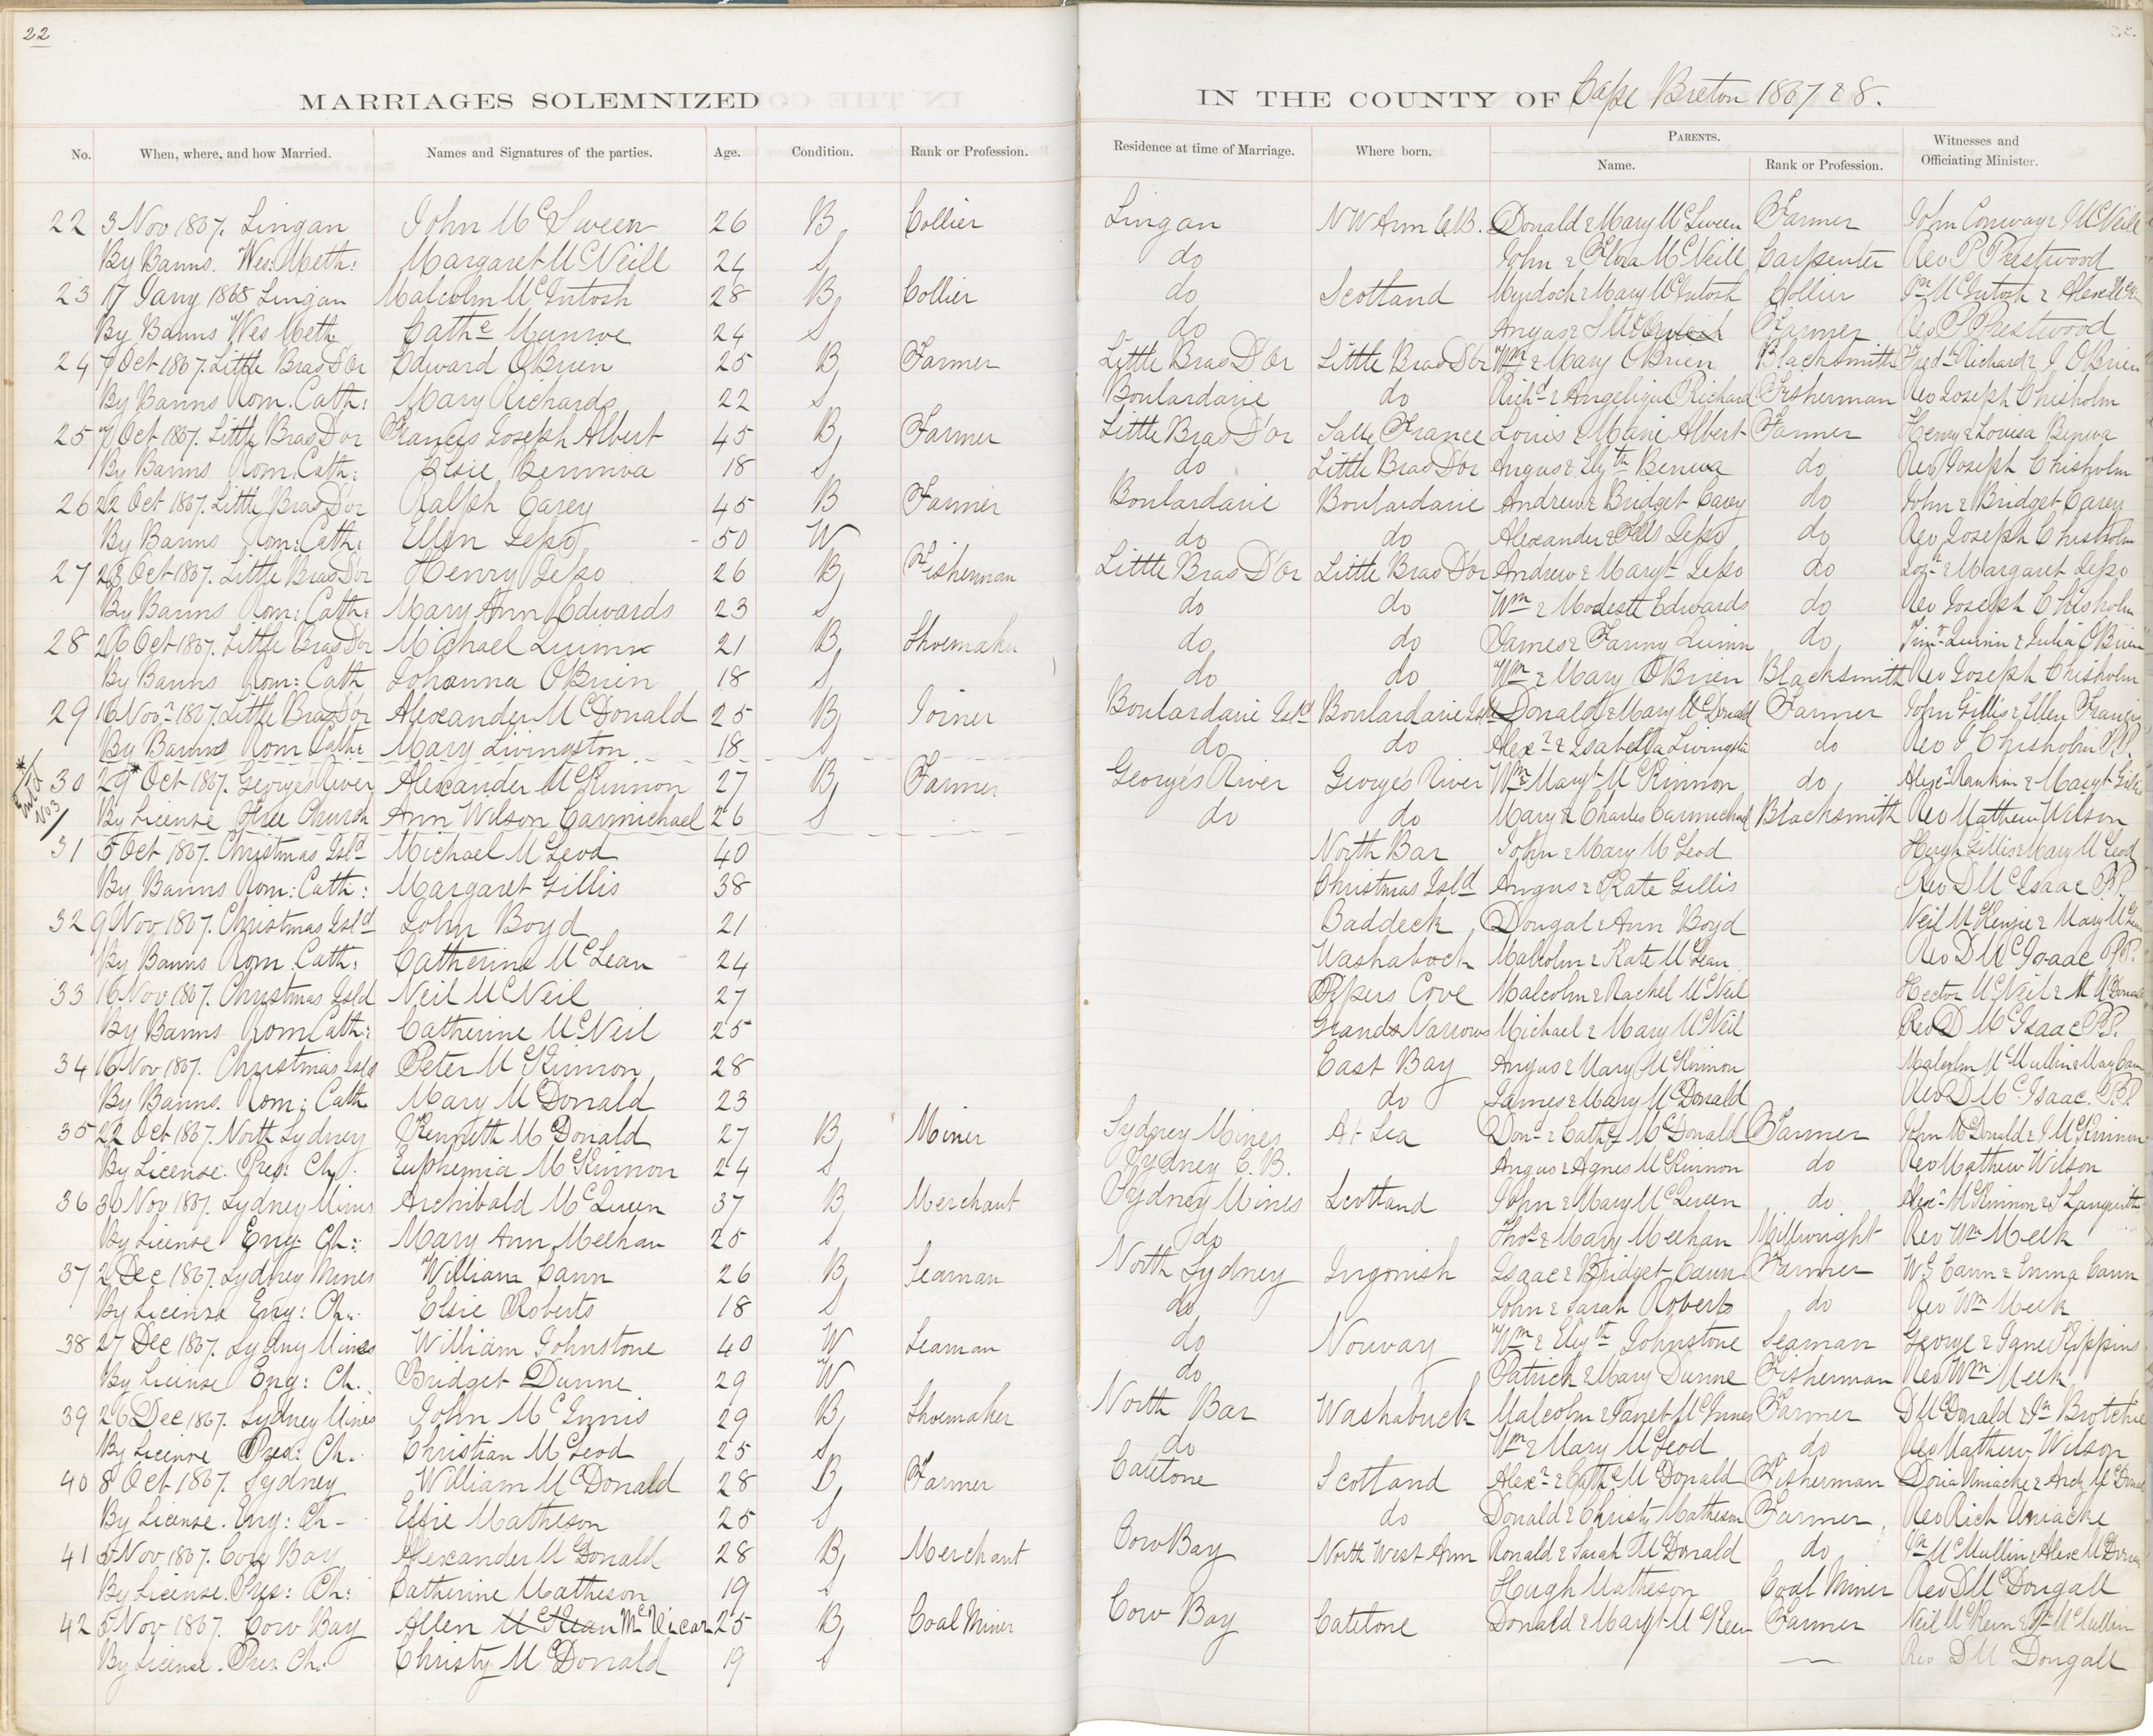 22
MARRIAGES SOLEMNIZED
IN THE COUNTY OF Cape Breton 1867 & 8.
No. When, where, and how Married. Names and Signatures of the parties. Age. Condition. Rank or Profession. Residence at time of Marriage. Where born. PARENTS. Name. Rank or Profession. Witnesses and Officiating Minister.
22 3 Nov 1867. Lingan John McSween 26 B Collier Lingan N W Arm C.B. Donald & Mary McSween Farmer John Conway & McNeill
By Banns. Wes: Meth: Margaret McNeill 24 S do John & Flora McNeill Carpenter Rev P Prestwood
23 17 Jany 1868 Lingan Malcolm McIntosh 28 B Collier do Scotland Murdoch & Mary McIntosh Collier Jn McIntosh &
By Banns Wes Meth Cathe Munroe 24 S do Angus & Farmer Rev P Prestwood
24 7 Oct 1867. Little Bras D'Or Edward O'Brien 25 B Farmer Little Bras D'Or Little Bras D'Or Wm & Mary O'Brien Blacksmith Fredk Richard & J. O'Brien
By Banns Rom. Cath: Mary Richards 22 S Boulardarie do Richd & Angelique Richard Fisherman Rev Joseph Chisholm
25 7 Oct 1867. Little Bras D'or Francis Joseph Albert 45 B Farmer Little Bras D'Or France Louis & Marie Albert Farmer Henry & Louisa Beneva
By Banns Rom. Cath: Elsie Benniva 18 S do Little Bras D'Or Angus & Elizth Beneva do Rev Joseph Chisholm
26 22 Oct 1867. Little Bras D'or Ralph Carey 45 B Farmer Boulardarie Boulardarie Andrew & Bridget Carey do John & Bridget Carey
By Banns Rom: Cath: Ellen Jesso 50 W do do Alexander & Jesso do Rev Joseph Chisholm
27 28 Oct 1867. Little Bras D'or Henry Jesso 26 B Fisherman Little Bras D'Or Little Bras D'Or Andrew & Maryt Jesso do & Margaret Jesso
By Banns Rom: Cath: Mary Ann Edwards 23 S do do Wm & Modeste Edwards do Rev Joseph Chisholm
28 26 Oct 1867. Little Bras D'or Michael Quinn 21 B Shoemaker do do James & Fanny Quinn do Quinn & Julia O'Brien
By Banns Rom: Cath Johanna O'Brien 18 S do do Wm & Mary O'Brien Blacksmith Rev Joseph Chisholm
29 16 Novr 1867. Little Bras D'or Alexander McDonald 25 B Joiner Boulardarie Isld Boulardarie Isld Donald & Mary McDonald Farmer John Gillis & Ellen Francis
By Banns Rom Cath: Mary Livingston 18 S do do Alexr & Isabella Livingston do Rev J Chisholm P.P.
* Entd No 3 30 29* Oct 1867. Georges River Alexander McKinnon 27 B Farmer George's River George's River Wm & Maryt McKinnon do Alexr Rankin & Margt Gillis
By License Free Church Ann Wilson Carmichael 26 S do do Mary & Charles Carmichael Blacksmith Rev Mathew Wilson
31 5 Oct 1867. Christmas Isld Michael McLeod 40 North Bar John & Mary McLeod Hugh Gillis & Mary McLeod
By Banns Rom: Cath: Margaret Gillis 38 Christmas Isld Angus & Kate Gillis Rev D McIsaac P.P.
32 9 Nov 1867. Christmas Isld John Boyd 21 Baddeck Dougal & Ann Boyd Neil McKenzie & Mary McLean
By Banns Rom. Cath: Catherine McLean 24 Washabock Malcolm & Kate McLean Rev D McIsaac P.P.
33 16 Nov 1867. Christmas Isld Neil McNeil 27 Pipers Cove Malcolm & Rachel McNeil Hector McNeil & M McDonald
By Banns Rom Cath: Catherine McNeil 25 Grand Narrows Michael & Mary McNeil Rev D McIsaac P.P.
34 16 Nov 1867. Christmas Isld Peter McKinnon 28 East Bay Angus & Mary McKinnon Malcolm McMullin & Mary
By Banns. Rom: Cath Mary McDonald 23 do James & Mary McDonald Rev D McIsaac. P.P.
35 22 Oct 1867. North Sydney Kenneth McDonald 27 B Miner Sydney Mines At Sea Dond & Cathe McDonald Farmer John McDonald & J McKinnon
By License. Pres: Ch. Euphemia McKinnon 24 S Sydney C.B. Angus & Agnes McKinnon do Rev Mathew Wilson
36 30 Nov 1867. Sydney Mines Archibald McQueen 37 B Merchant Sydney Mines Scotland John & Mary McQueen do Alexr McKinnon &
By License Eng: Ch: Mary Ann Meehan 25 S do Thos & Mary Meehan Millwright Rev Wm Meek
37 2 Dec 1867. Sydney Mines William Cann 26 B Seaman North Sydney Ingonish Isaac & Bridget Cann Farmer W G Cann & Emma Cann
By License Eng: Ch. Elsie Roberts 18 S do John & Sarah Roberts do Rev Wm Meek
38 27 Dec 1867. Sydney Mines William Johnstone 40 W Seaman do Norway Wm & Elizth Johnstone Seaman George & Jane Pippins
By License Eng: Ch. Bridget Dunne 29 W do Patrick & Mary Dunne Fisherman Rev Wm Meek
39 26 Dec 1867. Sydney Mines John McInnis 29 B Shoemaker North Bar Washabuck Malcolm & Janet McInnes Farmer D McDonald & Jn Brotchie
By License Pres: Ch. Christian McLeod 25 S do Wm & Mary McLeod do Rev Mathew Wilson
40 8 Oct 1867. Sydney William McDonald 28 B Farmer Catetone Scotland Alexr & Cathe McDonald Fisherman Uniacke & Arch McDonald
By License. Eng: Ch Effie Matheson 25 S do Donald & Christy Matheson Farmer Rev Rich Uniacke
41 5 Nov 1867. Cow Bay Alexander McDonald 28 B Merchant Cow Bay North West Arm Ronald & Sarah McDonald do Jn McMullin & Alex McDonald
By License. Pres: Ch: Catherine Matheson 19 S Hugh Matheson Coal Miner Rev D McDougall
42 5 Nov 1867. Cow Bay Allen McKean McVicar 25 B Coal Miner Cow Bay Catetone Donald & Margt McKeen Farmer Neil McKeen & McMullin
By License. Pres. Ch. Christy McDonald 19 S Rev D McDougall